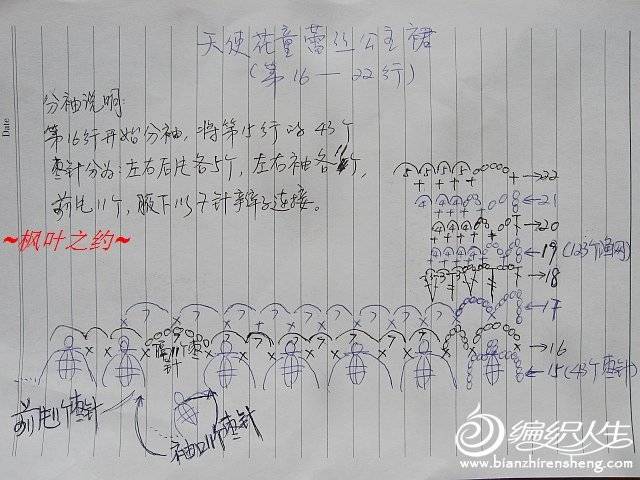 天使花童蕾丝公主裙
(第16—22行)
Date
分袖说明:
第16行开始分袖，将第15行的43个
枣针分为:左右后片各5个，左右袖各11个，
前片11个，腋下以7针辫子连接。
~枫叶之约~
→22
←21
→20
←19(123个渔网)
→18
←17
→16
←15(43个枣针)
前片11个枣针
袖口11个枣针
编织人生
www.bianzhirensheng.com